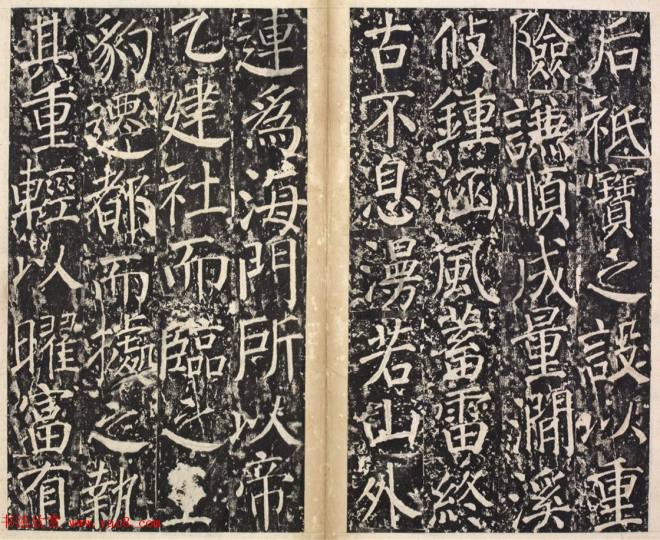 后祗寶之設以重
險謙順成量澗溪
攸鍾涵風蓄雷終
古不息漫若山外
連為海門所以帝
乙建社而臨之王
豹遷都而據之執
其重輕以曜富有
书法欣赏 www.yac8.com